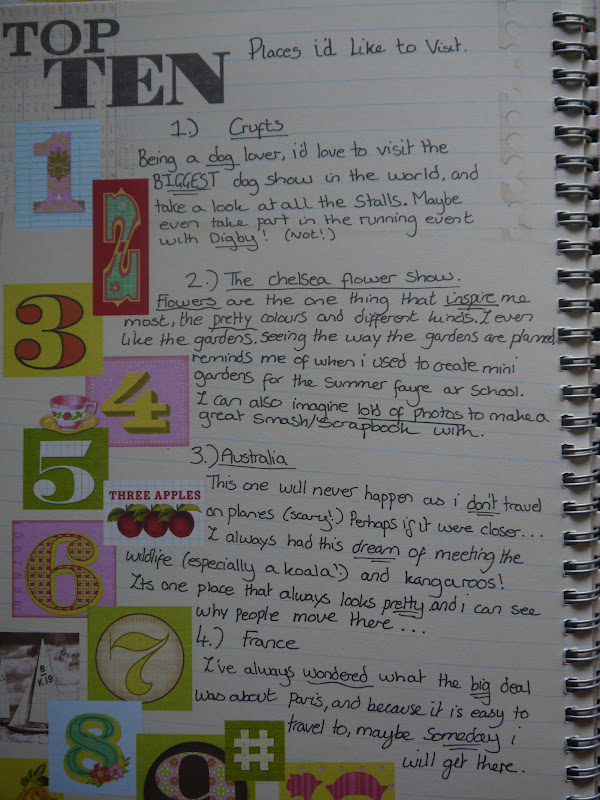 TOP TEN Places i'd Like to Visit.
1.) Crufts
Being a dog lover, i'd love to visit the
BIGGEST dog show in the world, and
take a look at all the Stalls. Maybe
even take part in the running event
with Digby! (Not!)
2.) The chelsea flower show.
Flowers are the one thing that inspire me
most, the pretty colours and different kinds. I even
like the gardens. seeing the way the gardens are planned,
reminds me of when i used to create mini
gardens for the summer fayre at School.
I can also imagine lots of photos to make a
great smash/scrapbook with.
3.) Australia
This one will never happen as i don't travel
on planes (scary!) Perhaps if it were closer...
I always had this dream of meeting the
wildlife (especially a koala!) and kangaroos!
Its one place that always looks pretty and i can see
why people move there...
4.) France
I've always wondered what the big deal
was about Paris, and because it is easy to
travel to, maybe Someday i
will get there.
1
2
3
4
5
THREE APPLES
6
7
8
K19
8
9
#
10